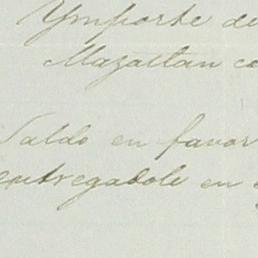 Ymporte de
Mazatlan co
Saldo en favor
entregadole en